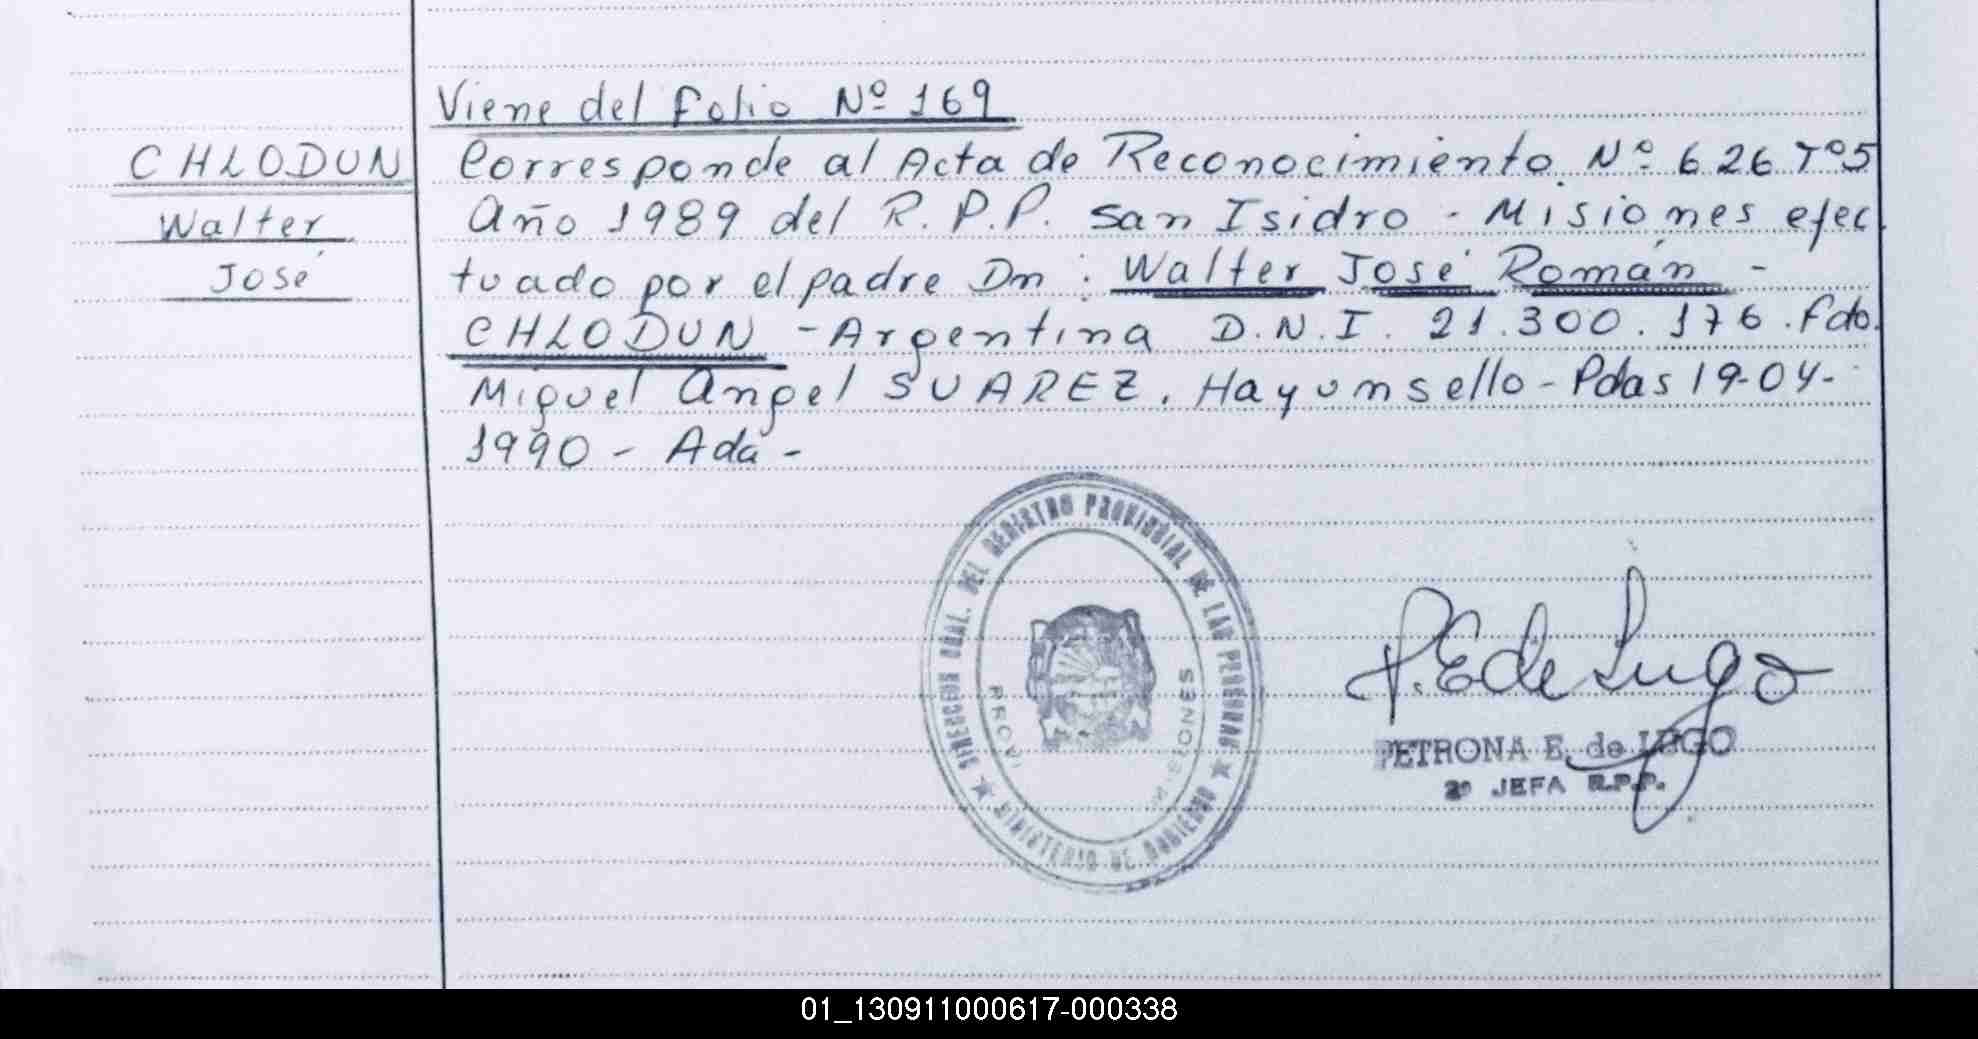 Viene del folio Nº 169
CHLODUN
Walter
José
Corresponde al Acta de Reconocimiento Nº 626 Tº5
Año 1989 del R.P.P. San Isidro - Misiones efec
tuado por el padre Dn: Walter José Román -
CHLODUN - Argentina D.N.I. 21.300.176. Fdo.
Miguel Angel SUAREZ. Hay un sello - Pdas 19-04-
1990 - Ada -
DIRECCION GRAL. DEL REGISTRO PROVINCIAL DE LAS PERSONAS
MINISTERIO DE GOBIERNO
PROVI
MISIONES
P. E de Lugo
PETRONA E. de LUGO
2º JEFA R.P.P.
01_130911000617-000338